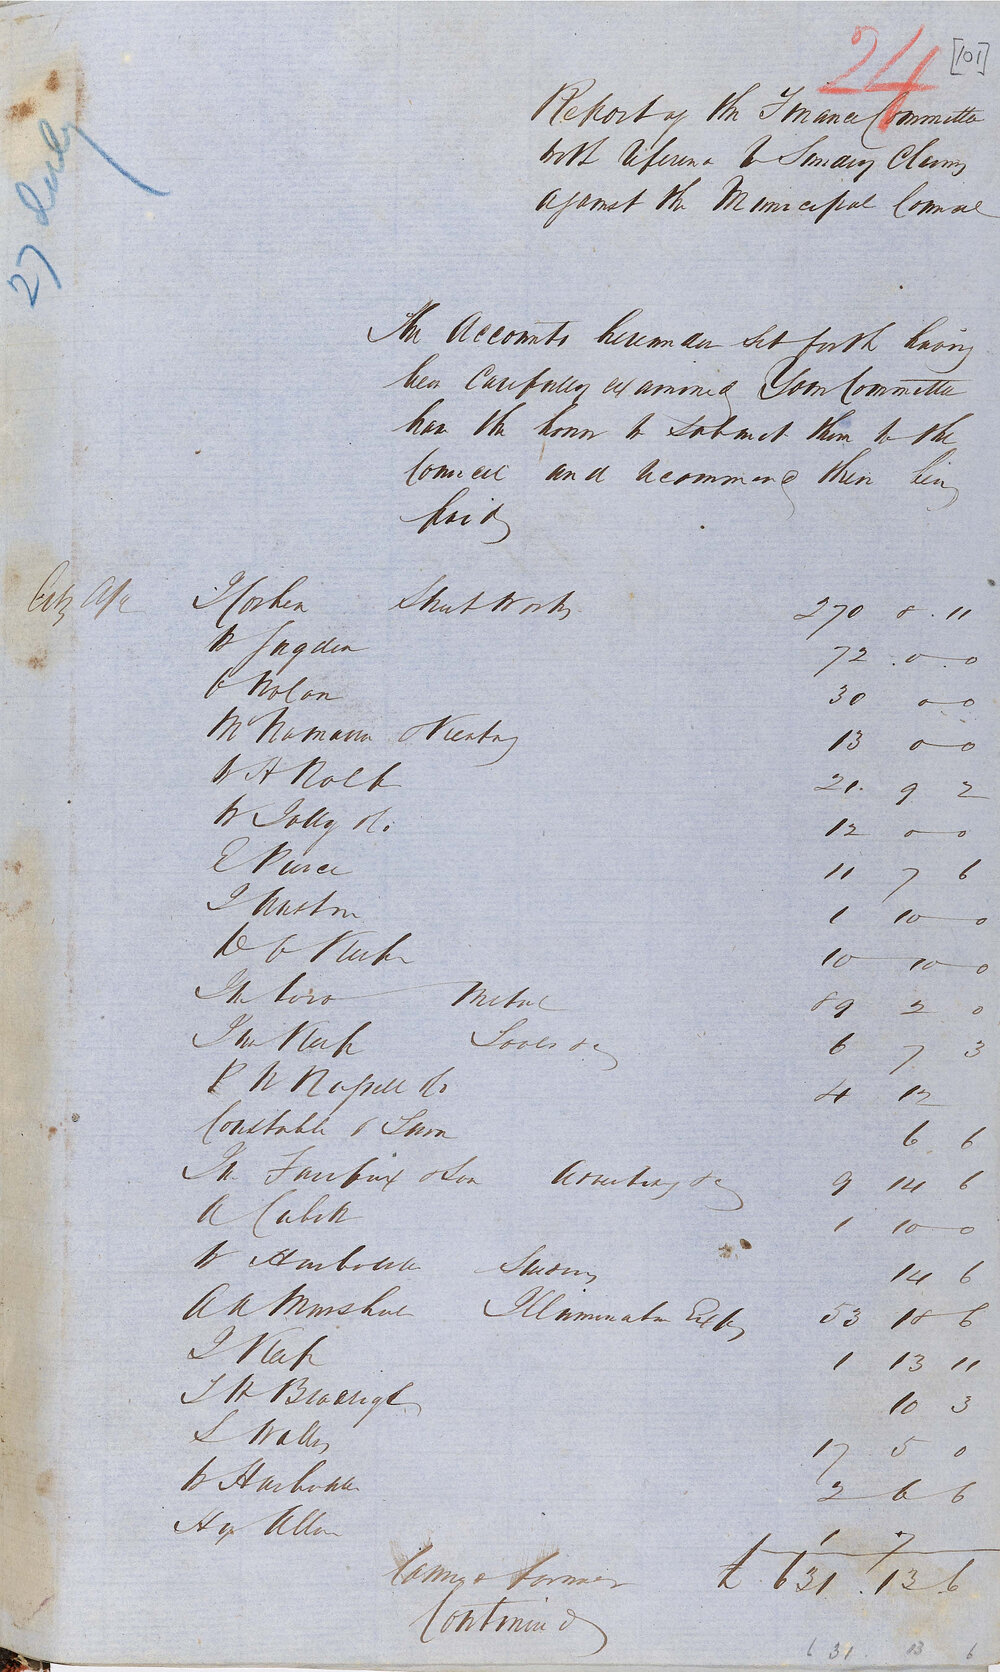 24
[101]
27 July
Report of the Finance Committee
with reference to Sundry Claims
against the Municipal Council
The Accounts hereunder set forth having
been carefully examined Your Committee
have the honor to submit them to the
Council and recommend their being
paid
City A/c J Corken Street Works 270 8 11
W Jagden 72 0 0
C Nolan 30 0 0
M Namara & Keating 13 0 0
W A Rolfe 21 9 2
W Jolly & Co 12 0 0
E Pierce 11 7 6
J 1 10 0
10 10 0
Jn Metal 89 2 0
Keep 6 7 3
P N Russell & Co 4 12
Constable 6 6
Jn Fairfax & Son Advertising &c 9 14 6
A Cubitt 1 10 0
W Harbottle Sundry 14 6
A A Marshall Illumination Exps 53 18 6
J Keep 1 13 11
10 3
S Waller 17 5 0
W Harbottle 2 6 6
Hy Allen 1 7
Carried forward £ 631 13 6
Continued
631 13 6